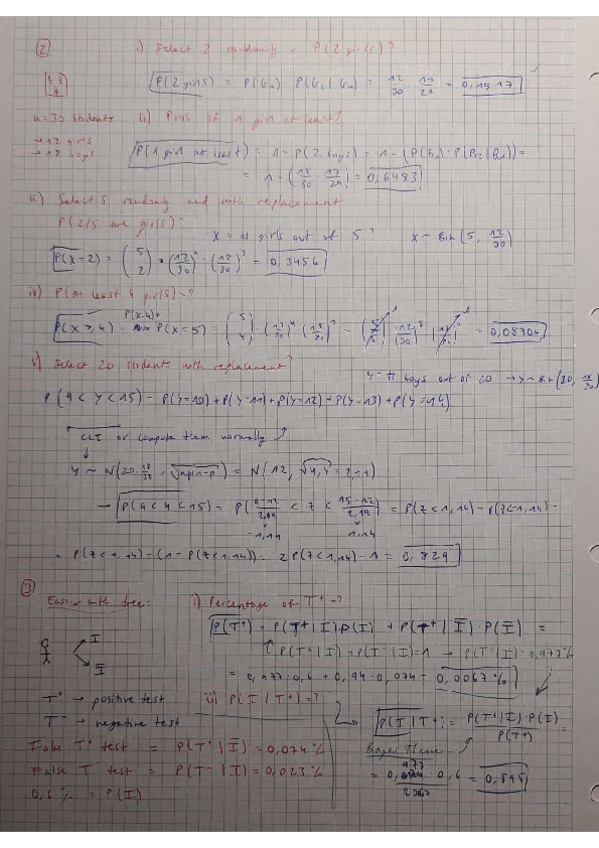 2 i) Select 2 randomly, P(2 girls)?
P(2 girls) = P(G₁) · P(G₂|G₁) = 12/30 · 11/29 = 0,1517
n=30 students ii) Prob of 1 girl at least?
→ 12 girls
→ 18 boys
P(1 girl at least) = 1 - P(2 boys) = 1 - (P(B₁) · P(B₂|B₁)) =
= 1 - (18/30 · 17/29) = 0,6483
iii) Select 5 randomly and with replacement
P(2/5 are girls)?
X = # girls out of 5? X ~ Bin(5, 12/30)
P(X=2) = (5 2) · (12/30)² · (18/30)³ = 0,3456
iv) P(At least 4 girls)=?
P(X=4)+
P(X≥4) = P(X=5) = (5 4) · (12/30)⁴ (18/30)¹ - (5 5) (12/30)⁵ = 0,08704
v) Select 20 students with replacement?
Y = # boys out of 20 → Y ~ Bin(20, 18/30)
P(9<Y<15) = P(Y=10) + P(Y=11) + P(Y=12) + P(Y=13) + P(Y=14)
CLT or compute them normally
Y ~ N(20·18/30, √np(1-p)) = N(12, √4,8 = 2,19)
→ P(9<Y<15) = P(9-12/2,19 < Z < 15-12/2,19) = P(Z<1,14) - P(Z<-1,14) =
-1,14 1,14
= P(Z<1,14) - (1 - P(Z<1,14)) = 2P(Z<1,14) - 1 = 0,829
3 Easier with tree: i) Percentage of T⁺=?
P(T⁺) = P(T⁺|I) P(I) + P(T⁺|Ī) · P(Ī) =
I P(T⁺|I) + P(T⁻|I) = 1 → P(T⁺|I) = 0,977%
Ī = 0,977·0,6 + 0,94·0,074 = 0,0067%
T⁺ → positive test iii) P(I|T⁺)=?
T⁻ → negative test P(I|T⁺) = P(T⁺|I)·P(I) / P(T⁺) =
False T⁺ test = P(T⁺|Ī) = 0,074% Bayes
False T⁻ test = P(T⁻|I) = 0,023%
0,6% = P(I)